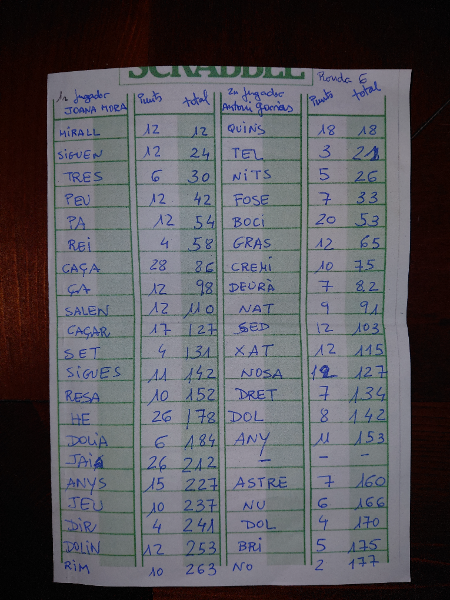 SCRABBLE Ronda 6
1r jugador Punts total 2n jugador Punts total
JOANA MORA Antoni
MIRALL 12 12 QUINS 18 18
SIGUEN 12 24 TEL 3 21
TRES 6 30 NITS 5 26
PEU 12 42 FOSE 7 33
PA 12 54 BOCI 20 53
REI 4 58 GRAS 12 65
CAÇA 28 86 CREMI 10 75
ÇA 12 98 DEURÀ 7 82
SALEN 12 110 NAT 9 91
CAÇAR 17 127 SED 12 103
SET 4 131 XAT 12 115
SIGUES 11 142 NOSA 12 127
RESA 10 152 DRET 7 134
HE 26 178 DOL 8 142
DOLIA 6 184 ANY 11 153
JAI 26 212 — – –
ANYS 15 227 ASTRE 7 160
JEU 10 237 NU 6 166
DIR 4 241 DOL 4 170
DOLIN 12 253 BRI 5 175
RIM 10 263 NO 2 177